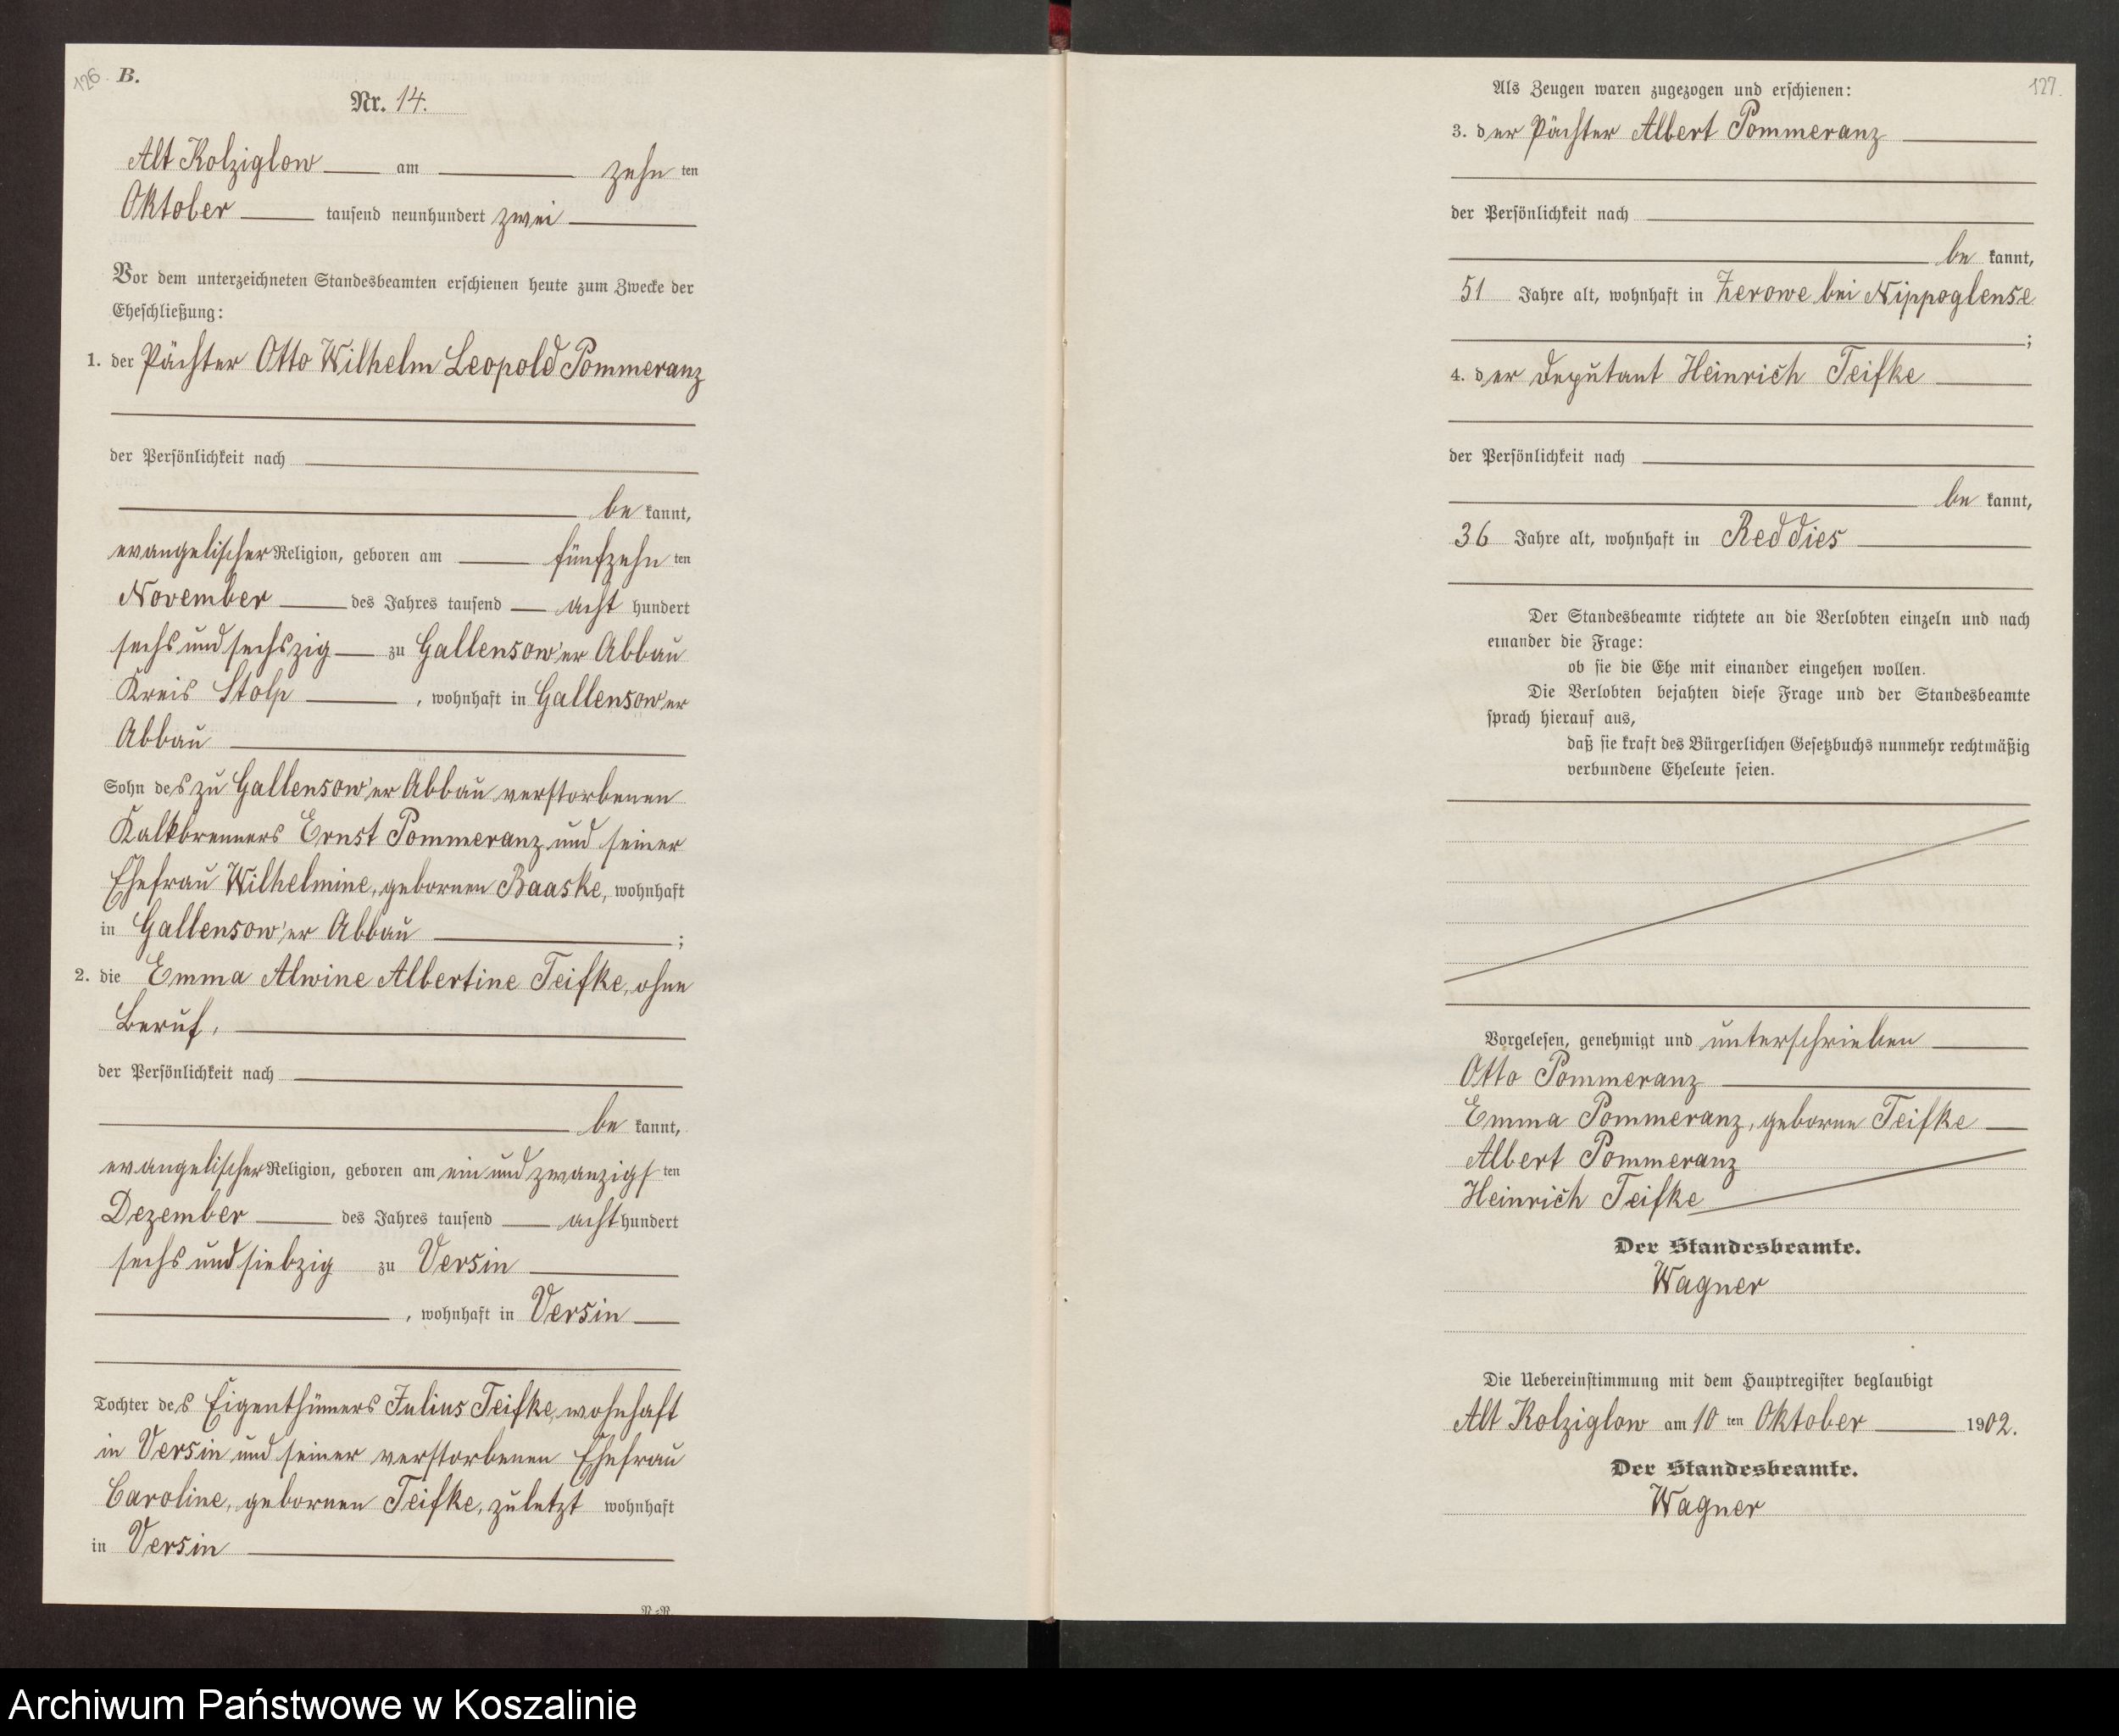 126. B.
Nr. 14.
Alt Kolziglow am zehn ten
Oktober tausend neunhundert zwei
Vor dem unterzeichneten Standesbeamten erschienen heute zum Zwecke der
Eheschließung:
1. der Pächter Otto Wilhelm Leopold Pommeranz
der Persönlichkeit nach
be kannt,
evangelischer Religion, geboren am fünfzehn ten
November des Jahres tausend acht hundert
sechs und sechszig zu Gallensow'er Abbau
Kreis Stolp, wohnhaft in Gallensow'er
Abbau
Sohn des zu Gallensow'er Abbau verstorbenen
Kalkbrenners Ernst Pommeranz und seiner
Ehefrau Wilhelmine, gebornen Baaske, wohnhaft
in Gallensow'er Abbau ;
2. die Emma Alwine Albertine Teifke, ohne
Beruf,
der Persönlichkeit nach
be kannt,
evangelischer Religion, geboren am ein und zwanzigs ten
Dezember des Jahres tausend acht hundert
sechs und siebzig zu Versin
, wohnhaft in Versin
Tochter des Eigenthümers Julius Teifke, wohnhaft
in Versin und seiner verstorbenen Ehefrau
Caroline, gebornen Teifke, zuletzt wohnhaft
in Versin
127.
Als Zeugen waren zugezogen und erschienen:
3. der Pächter Albert Pommeranz
der Persönlichkeit nach
be kannt,
51 Jahre alt, wohnhaft in Zerowe bei Nippoglense
;
4. der Deputant Heinrich Teifke
der Persönlichkeit nach
be kannt,
36 Jahre alt, wohnhaft in Reddies
Der Standesbeamte richtete an die Verlobten einzeln und nach
einander die Frage:
ob sie die Ehe mit einander eingehen wollen.
Die Verlobten bejahten diese Frage und der Standesbeamte
sprach hierauf aus,
daß sie kraft des Bürgerlichen Gesetzbuchs nunmehr rechtmäßig
verbundene Eheleute seien.
Vorgelesen, genehmigt und unterschrieben
Otto Pommeranz
Emma Pommeranz, geborne Teifke
Albert Pommeranz
Heinrich Teifke
Der Standesbeamte.
Wagner
Die Uebereinstimmung mit dem Hauptregister beglaubigt
Alt Kolziglow am 10 ten Oktober 1902.
Der Standesbeamte.
Wagner
Archiwum Państwowe w Koszalinie